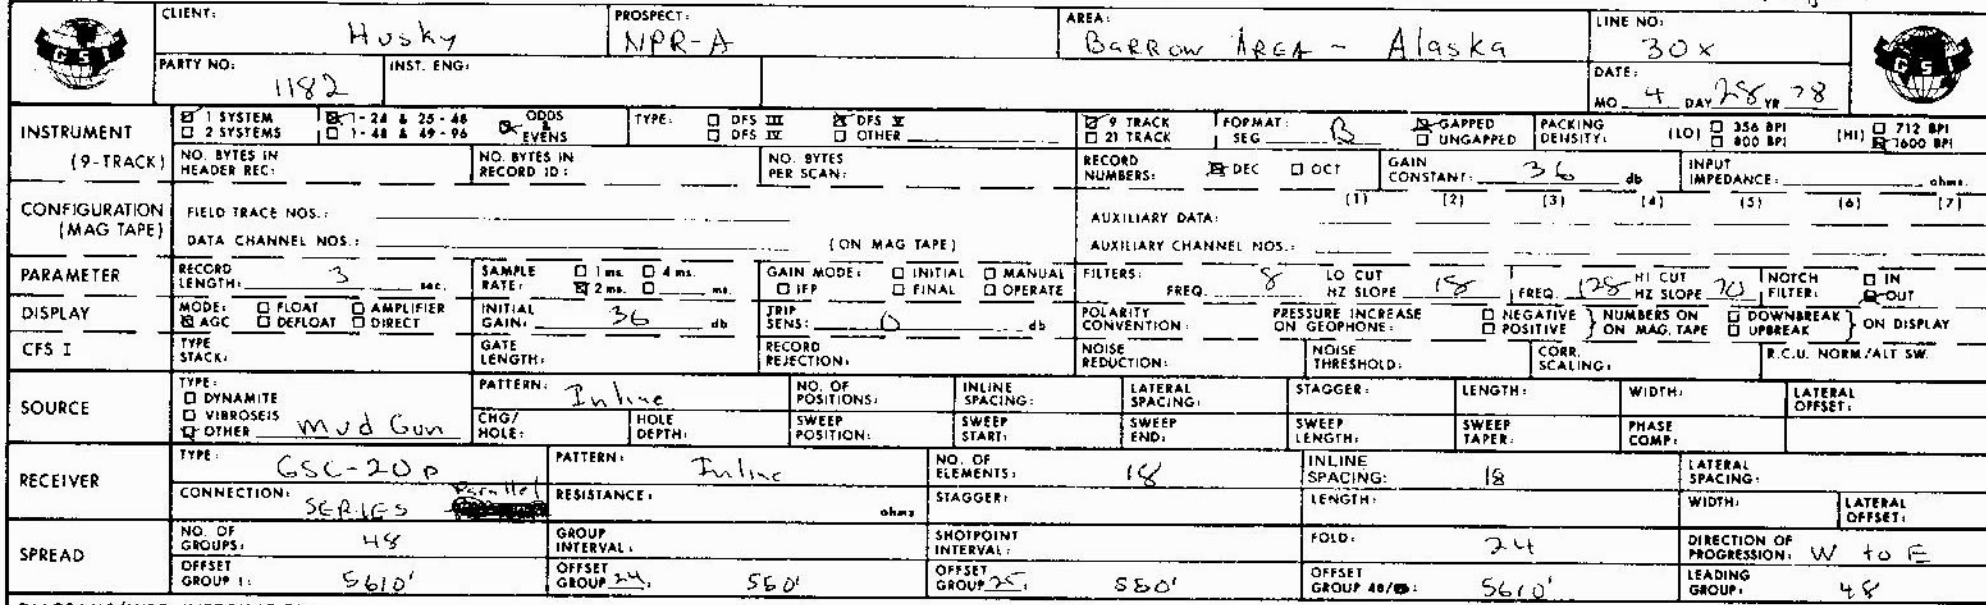 CLIENT: Husky PROSPECT: NPR-A AREA: BARROW AREA - Alaska LINE NO: 30x
GSI GSI
PARTY NO: 1182 INST. ENG: DATE: MO 4 DAY 28 YR 78
INSTRUMENT ☑ 1 SYSTEM ☒ 1-24 & 25-48 ☒ ODDS & EVENS TYPE: ☐ DFS III ☒ DFS V ☑ 9 TRACK FORMAT: SEG B ☒ GAPPED PACKING DENSITY: (LO) ☐ 356 BPI (HI) ☐ 712 BPI
☐ 2 SYSTEMS ☐ 1-48 & 49-96 ☐ DFS IV ☐ OTHER ☐ 21 TRACK ☐ UNGAPPED ☐ 800 BPI ☒ 1600 BPI
(9-TRACK) NO. BYTES IN HEADER REC: NO. BYTES IN RECORD ID: NO. BYTES PER SCAN: RECORD NUMBERS: ☒ DEC ☐ OCT GAIN CONSTANT: 36 db INPUT IMPEDANCE: ohms.
CONFIGURATION (MAG TAPE) FIELD TRACE NOS.: AUXILIARY DATA: (1) (2) (3) (4) (5) (6) (7)
DATA CHANNEL NOS.: (ON MAG TAPE) AUXILIARY CHANNEL NOS.:
PARAMETER RECORD LENGTH: 3 sec. SAMPLE RATE: ☐ 1 ms. ☐ 4 ms. ☒ 2 ms. ☐ ms. GAIN MODE: ☐ INITIAL ☐ MANUAL ☐ IFP ☐ FINAL ☐ OPERATE FILTERS: FREQ. 8 LO CUT HZ SLOPE 18 FREQ. 128 HI CUT HZ SLOPE 70 NOTCH FILTER: ☐ IN ☒ OUT
DISPLAY MODE: ☐ FLOAT ☐ AMPLIFIER ☒ AGC ☐ DEFLOAT ☐ DIRECT INITIAL GAIN: 36 db TRIP SENS: 0 db POLARITY CONVENTION: PRESSURE INCREASE ON GEOPHONE: ☐ NEGATIVE ☐ POSITIVE } NUMBERS ON ON MAG. TAPE ☐ DOWNBREAK ☐ UPBREAK } ON DISPLAY
CFS I TYPE STACK: GATE LENGTH: RECORD REJECTION: NOISE REDUCTION: NOISE THRESHOLD: CORR. SCALING: R.C.U. NORM/ALT SW.
SOURCE TYPE: ☐ DYNAMITE ☐ VIBROSEIS ☑ OTHER Mud Gun PATTERN: Inline NO. OF POSITIONS: INLINE SPACING: LATERAL SPACING: STAGGER: LENGTH: WIDTH: LATERAL OFFSET:
CHG/HOLE: HOLE DEPTH: SWEEP POSITION: SWEEP START: SWEEP END: SWEEP LENGTH: SWEEP TAPER: PHASE COMP:
RECEIVER TYPE: GSC-20D PATTERN: Inline NO. OF ELEMENTS: 18 INLINE SPACING: 18 LATERAL SPACING:
CONNECTION: SERIES Parallel RESISTANCE: ohms STAGGER: LENGTH: WIDTH: LATERAL OFFSET:
SPREAD NO. OF GROUPS: 48 GROUP INTERVAL: SHOTPOINT INTERVAL: FOLD: 24 DIRECTION OF PROGRESSION: W to E
OFFSET GROUP 1: 5610' OFFSET GROUP 24: 550' OFFSET GROUP 25: 550' OFFSET GROUP 48/ 5610' LEADING GROUP: 48